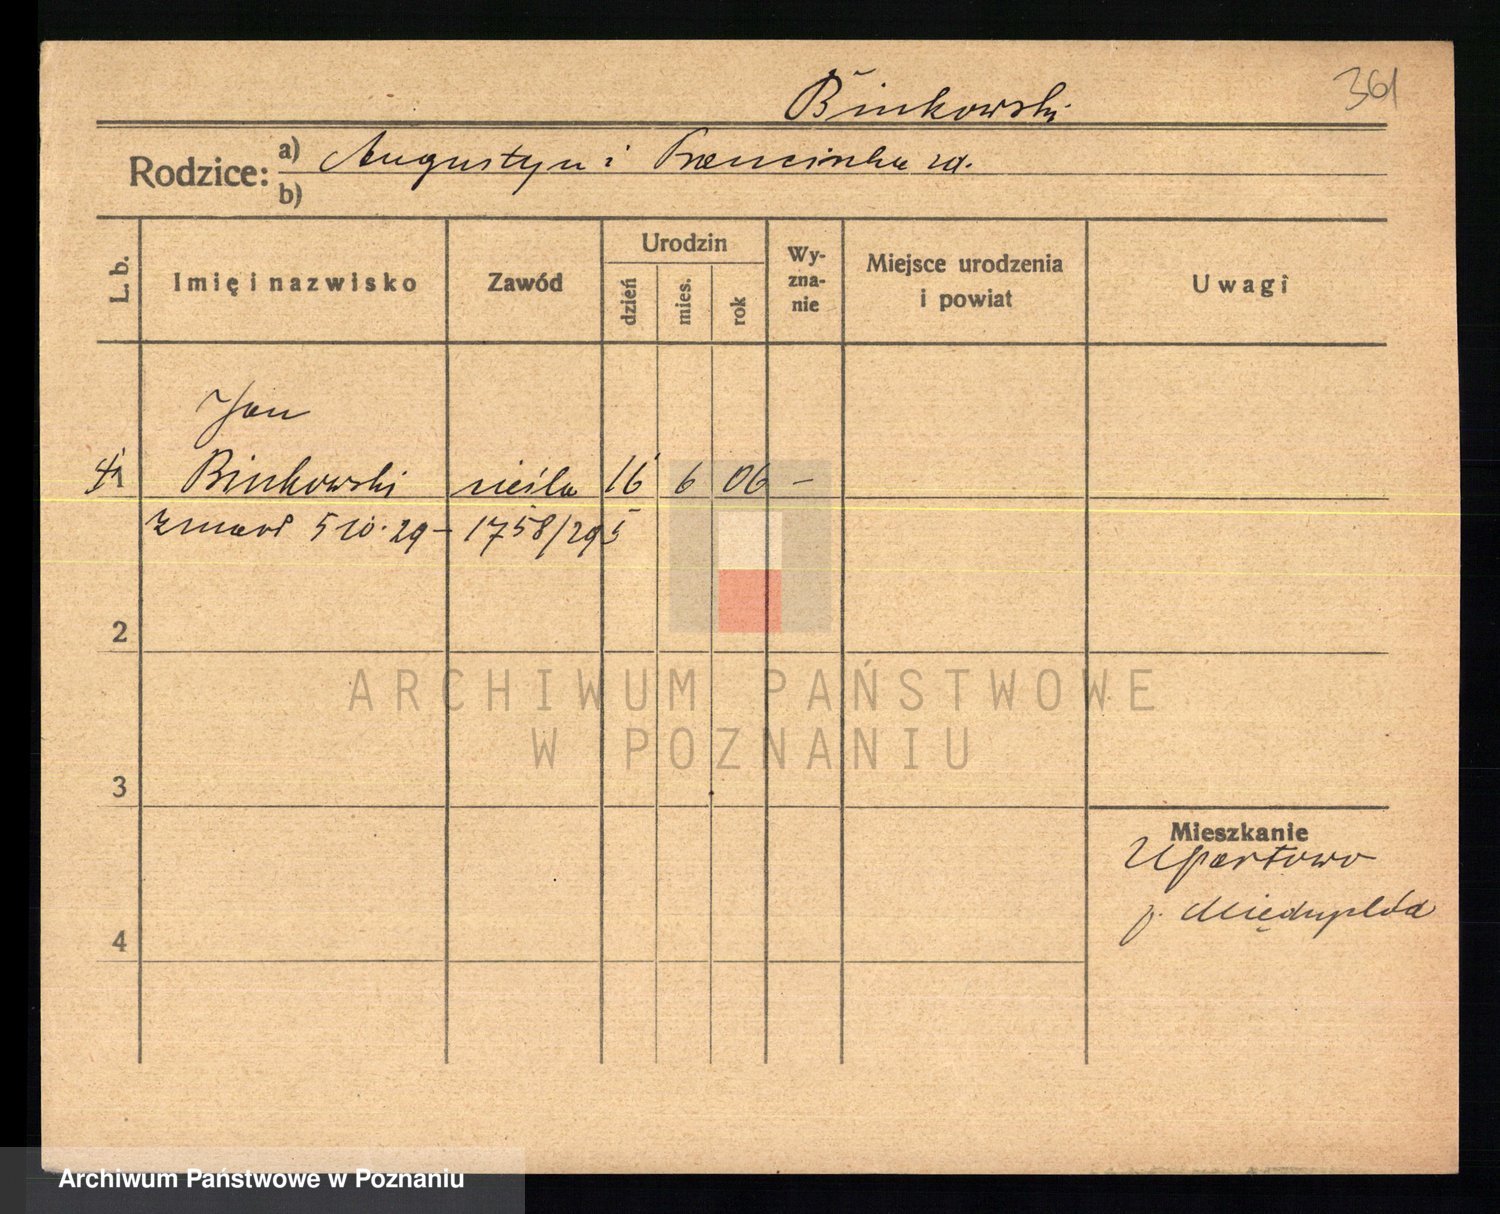 361
Binkowski
Rodzice: a) Augustyn i Franciszka zd.
b)
L. b. Imię i nazwisko Zawód Urodzin dzień mies. rok Wyznanie Miejsce urodzenia i powiat Uwagi
Jan
Binkowski cieśla 16 6 06 –
zmarł 5 10. 29 – 1758/29 5
2
3
4
Mieszkanie
Upartowo
p. Międzychód
ARCHIWUM PAŃSTWOWE
W POZNANIU
Archiwum Państwowe w Poznaniu